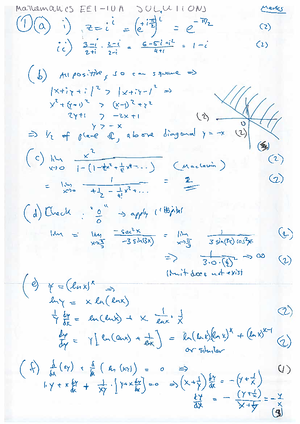 Mathematics EE1-10A SOLUTIONS Marks
① (a) i) z = i^i = (e^{iπ/2})^i = e^{-π/2} (2)
ii) (3-i)/(2+i) · (2-i)/(2-i) = (6-5i+i²)/(4+1) = 1-i (2)
(b) All positive, so can square ⇒
|x+iy+i|² > |x+iy-1|²
x²+(y+1)² > (x-1)²+y²
2y+1 > -2x+1
y > -x
(2)
(2)
⇒ 1/2 of plane ℂ, above diagonal y=-x
(c) lim x→0 x²/(1-(1-
= lim x→0 = 2 (Maclaurin) (2)
(2)
(d) Check: "0/0" → apply l'Hôpital
lim = lim = lim (2)
⇒ → ∞ (2)
limit does not exist
(e) y = (ln x)^x ⇒
ln y = x ln(ln x)
1/y dy/dx = ln(ln x) + x 1/ln x · 1/x (2)
dy/dx = y[ln(ln x) + 1/ln x] = ln(ln x)(ln x)^x + (ln x)^{x-1} (2)
or similar
(f) d/dx (xy) + d/dx (ln(xy)) = 0 ⇒ (1)
y + x dy/dx + 1/xy [y + x dy/dx] = 0 ⇒ (x + 1/y) dy/dx = -(y + 1/x)
dy/dx = -(y+1/x)/(x+1/y) = -y/x